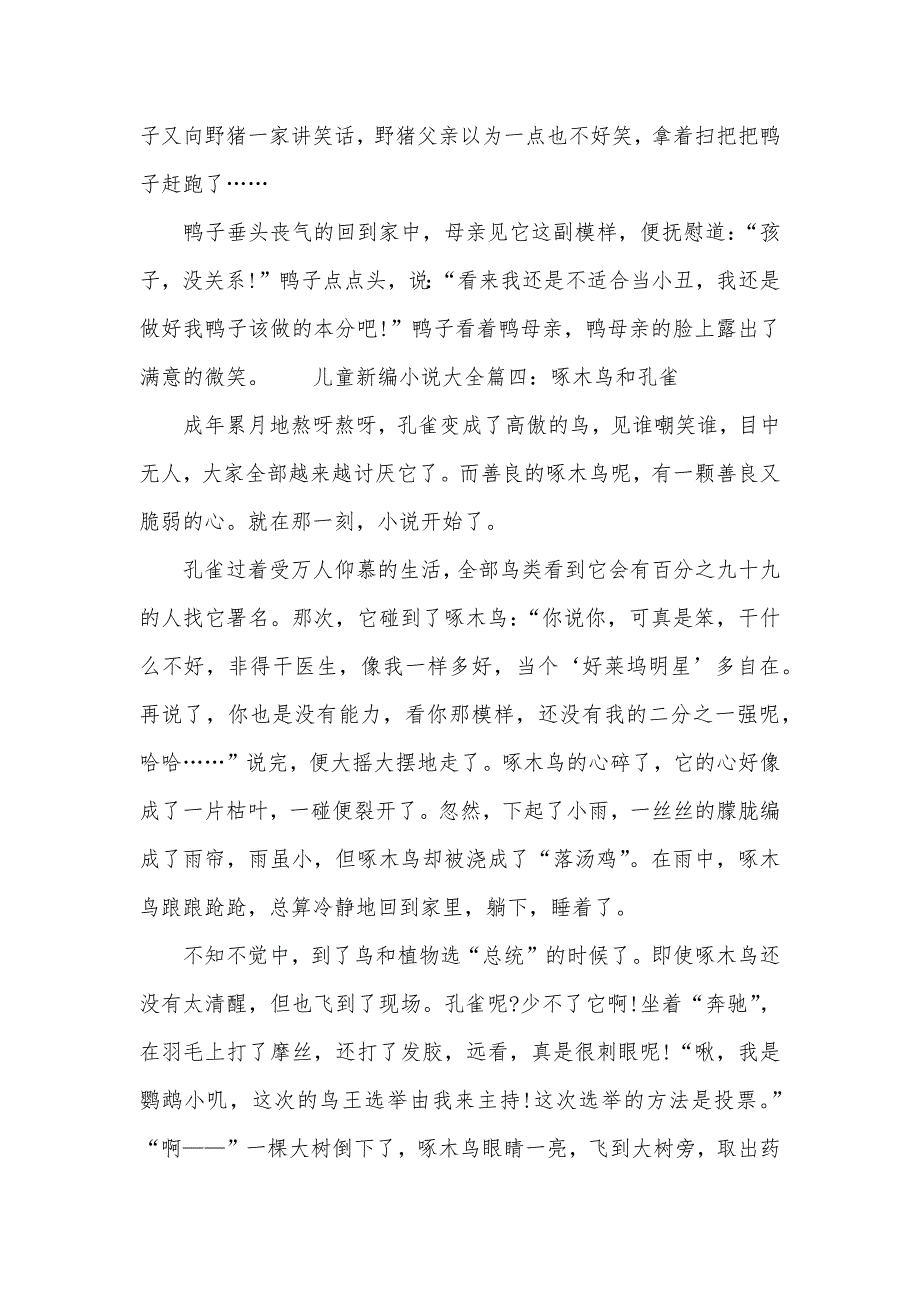 子又向野猪一家讲笑话，野猪父亲以为一点也不好笑，拿着扫把把鸭
子赶跑了……
鸭子垂头丧气的回到家中，母亲见它这副模样，便抚慰道：“孩
子，没关系!”鸭子点点头，说：“看来我还是不适合当小丑，我还是
做好我鸭子该做的本分吧!”鸭子看着鸭母亲，鸭母亲的脸上露出了
满意的微笑。　　儿童新编小说大全篇四：啄木鸟和孔雀
成年累月地熬呀熬呀，孔雀变成了高傲的鸟，见谁嘲笑谁，目中
无人，大家全部越来越讨厌它了。而善良的啄木鸟呢，有一颗善良又
脆弱的心。就在那一刻，小说开始了。
孔雀过着受万人仰慕的生活，全部鸟类看到它会有百分之九十九
的人找它署名。那次，它碰到了啄木鸟：“你说你，可真是笨，干什
么不好，非得干医生，像我一样多好，当个‘好莱坞明星’多自在。
再说了，你也是没有能力，看你那模样，还没有我的二分之一强呢，
哈哈……”说完，便大摇大摆地走了。啄木鸟的心碎了，它的心好像
成了一片枯叶，一碰便裂开了。忽然，下起了小雨，一丝丝的朦胧编
成了雨帘，雨虽小，但啄木鸟却被浇成了“落汤鸡”。在雨中，啄木
鸟踉踉跄跄，总算冷静地回到家里，躺下，睡着了。
不知不觉中，到了鸟和植物选“总统”的时候了。即使啄木鸟还
没有太清醒，但也飞到了现场。孔雀呢?少不了它啊!坐着“奔驰”，
在羽毛上打了摩丝，还打了发胶，远看，真是很刺眼呢!“啾，我是
鹦鹉小叽，这次的鸟王选举由我来主持!这次选举的方法是投票。”
“啊——”一棵大树倒下了，啄木鸟眼睛一亮，飞到大树旁，取出药